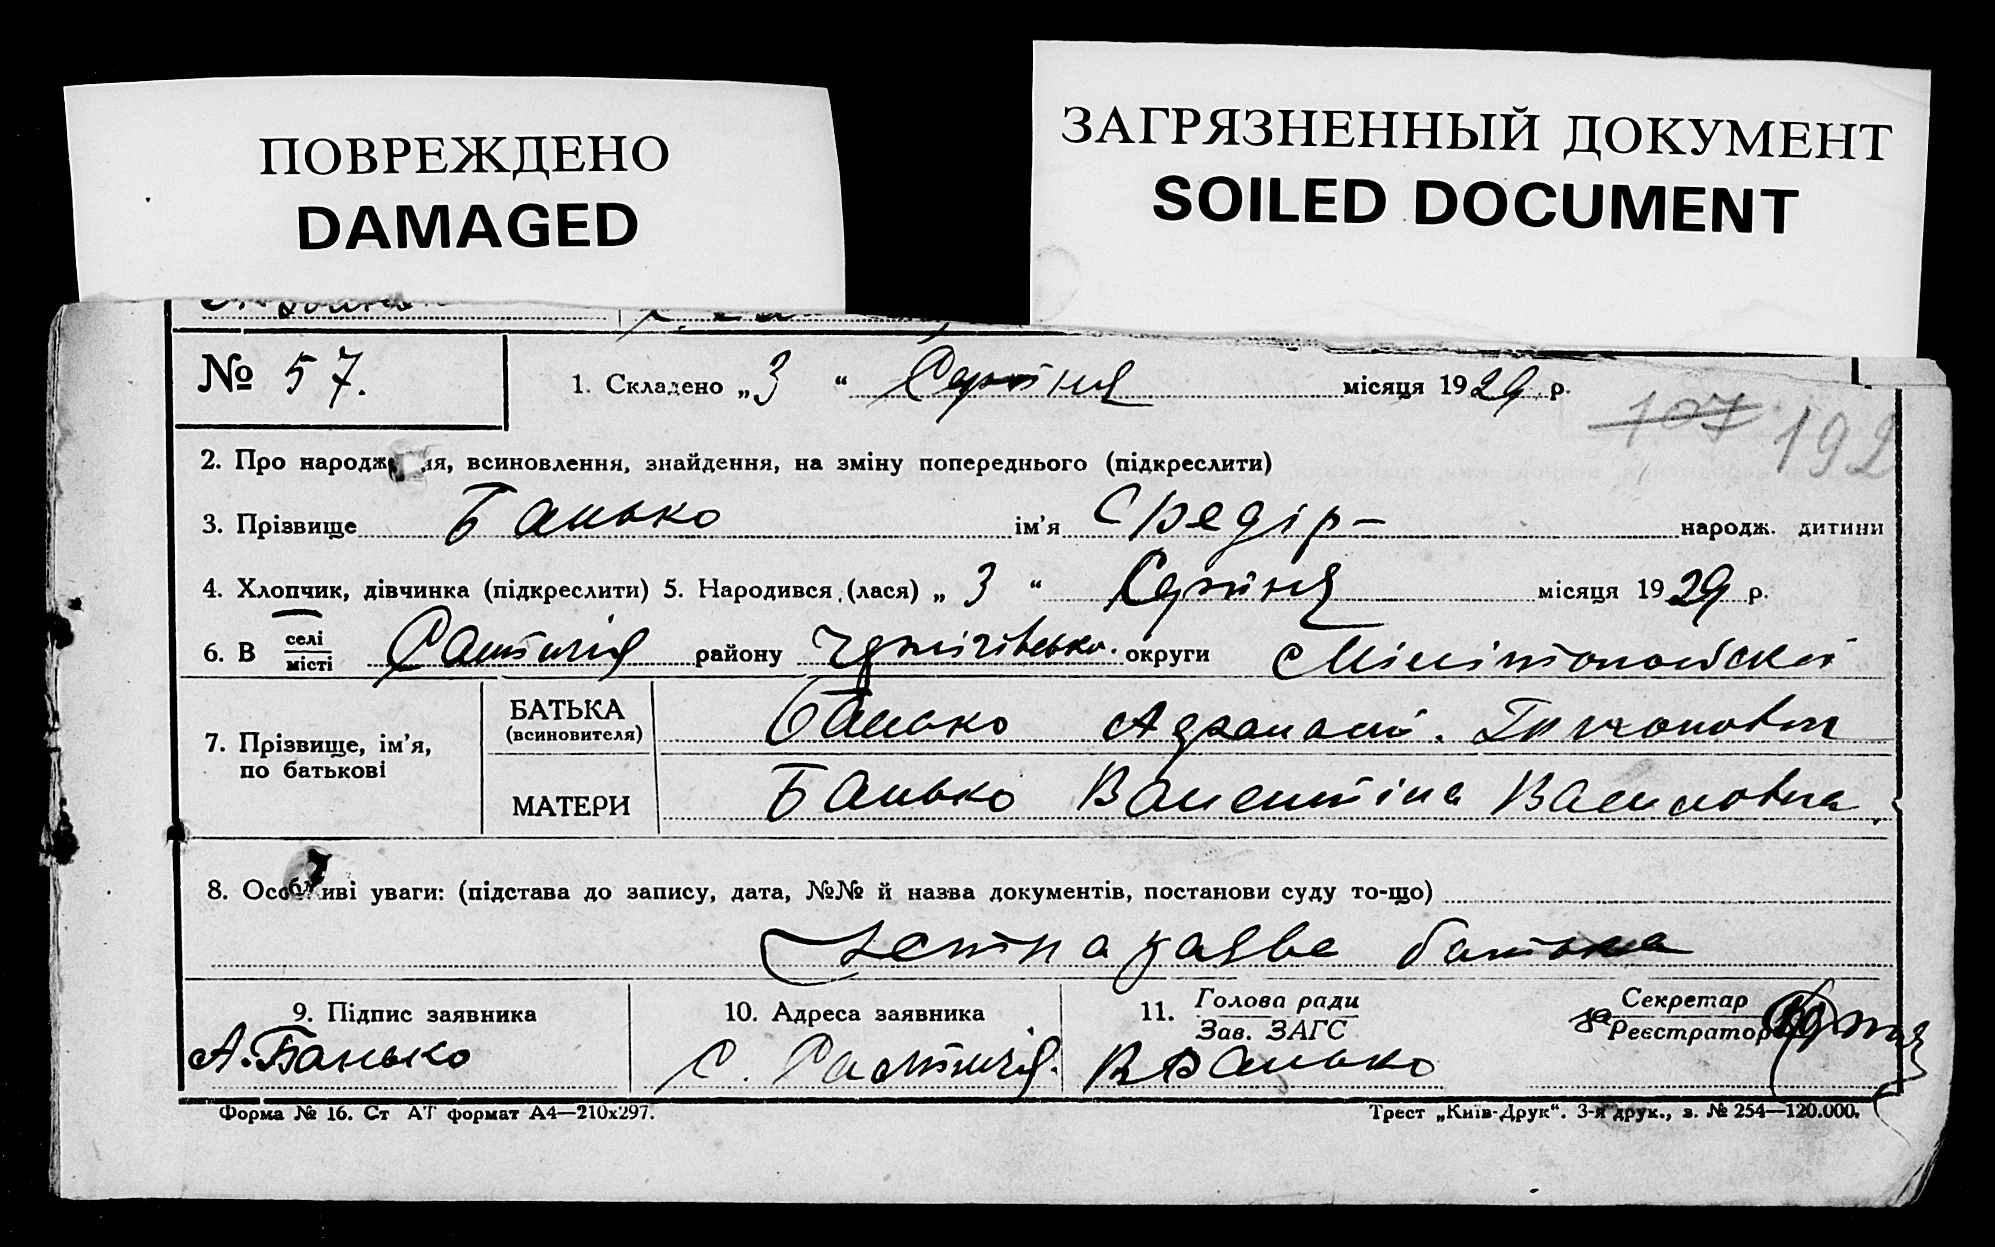 ПОВРЕЖДЕНО
DAMAGED
ЗАГРЯЗНЕННЫЙ ДОКУМЕНТ
SOILED DOCUMENT
№ 57.
1. Складено „3“ Серпня місяця 1929 р.
107 192
2. Про народження, всиновлення, знайдення, на зміну попереднього (підкреслити)
3. Прізвище Банько ім'я Федір народж. дитини
4. Хлопчик, дівчинка (підкреслити) 5. Народився (лася) „3“ Серпня місяця 1929 р.
6. В селі місті району округи
7. Прізвище, ім'я, по батькові
БАТЬКА (всиновителя) Банько
МАТЕРИ Банько Валентіна
8. Особливі уваги: (підстава до запису, дата, №№ й назва документів, постанови суду то-що)
заява батька
9. Підпис заявника
10. Адреса заявника
11. Голова ради
Зав. ЗАГС
Секретар
Реєстратор
А. Банько
с.
В Банько
Форма № 16. Ст АТ формат А4—210х297.
Трест „Київ-Друк“. 3-я друк., з. № 254—120.000.